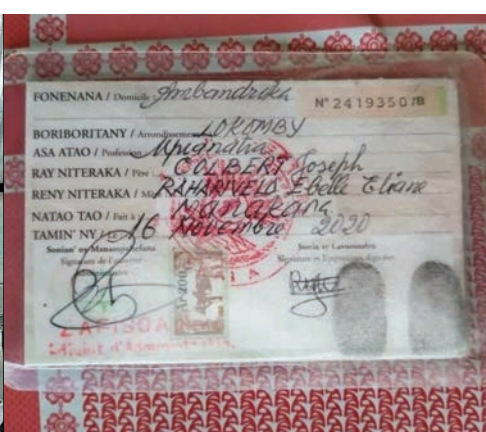 FONENANA / Domicile : Ambandrika
N° 2419350/B
BORIBORITANY / Arrondissement LOKOMBY
ASA ATAO / Profession Mpianatra
RAY NITERAKA / Père COLBERT Joseph
RENY NITERAKA / Mère RAHARIVELO Ebelle Eliane
NATAO TAO / Fait à Manakara
TAMIN' NY / Le 16 Novembre 2020
Sonian' ny Manampahefana
Sonia sy Lavanandro
Signature de l'autorité
Signature et Empreintes digitales
Adjoint d'Administration